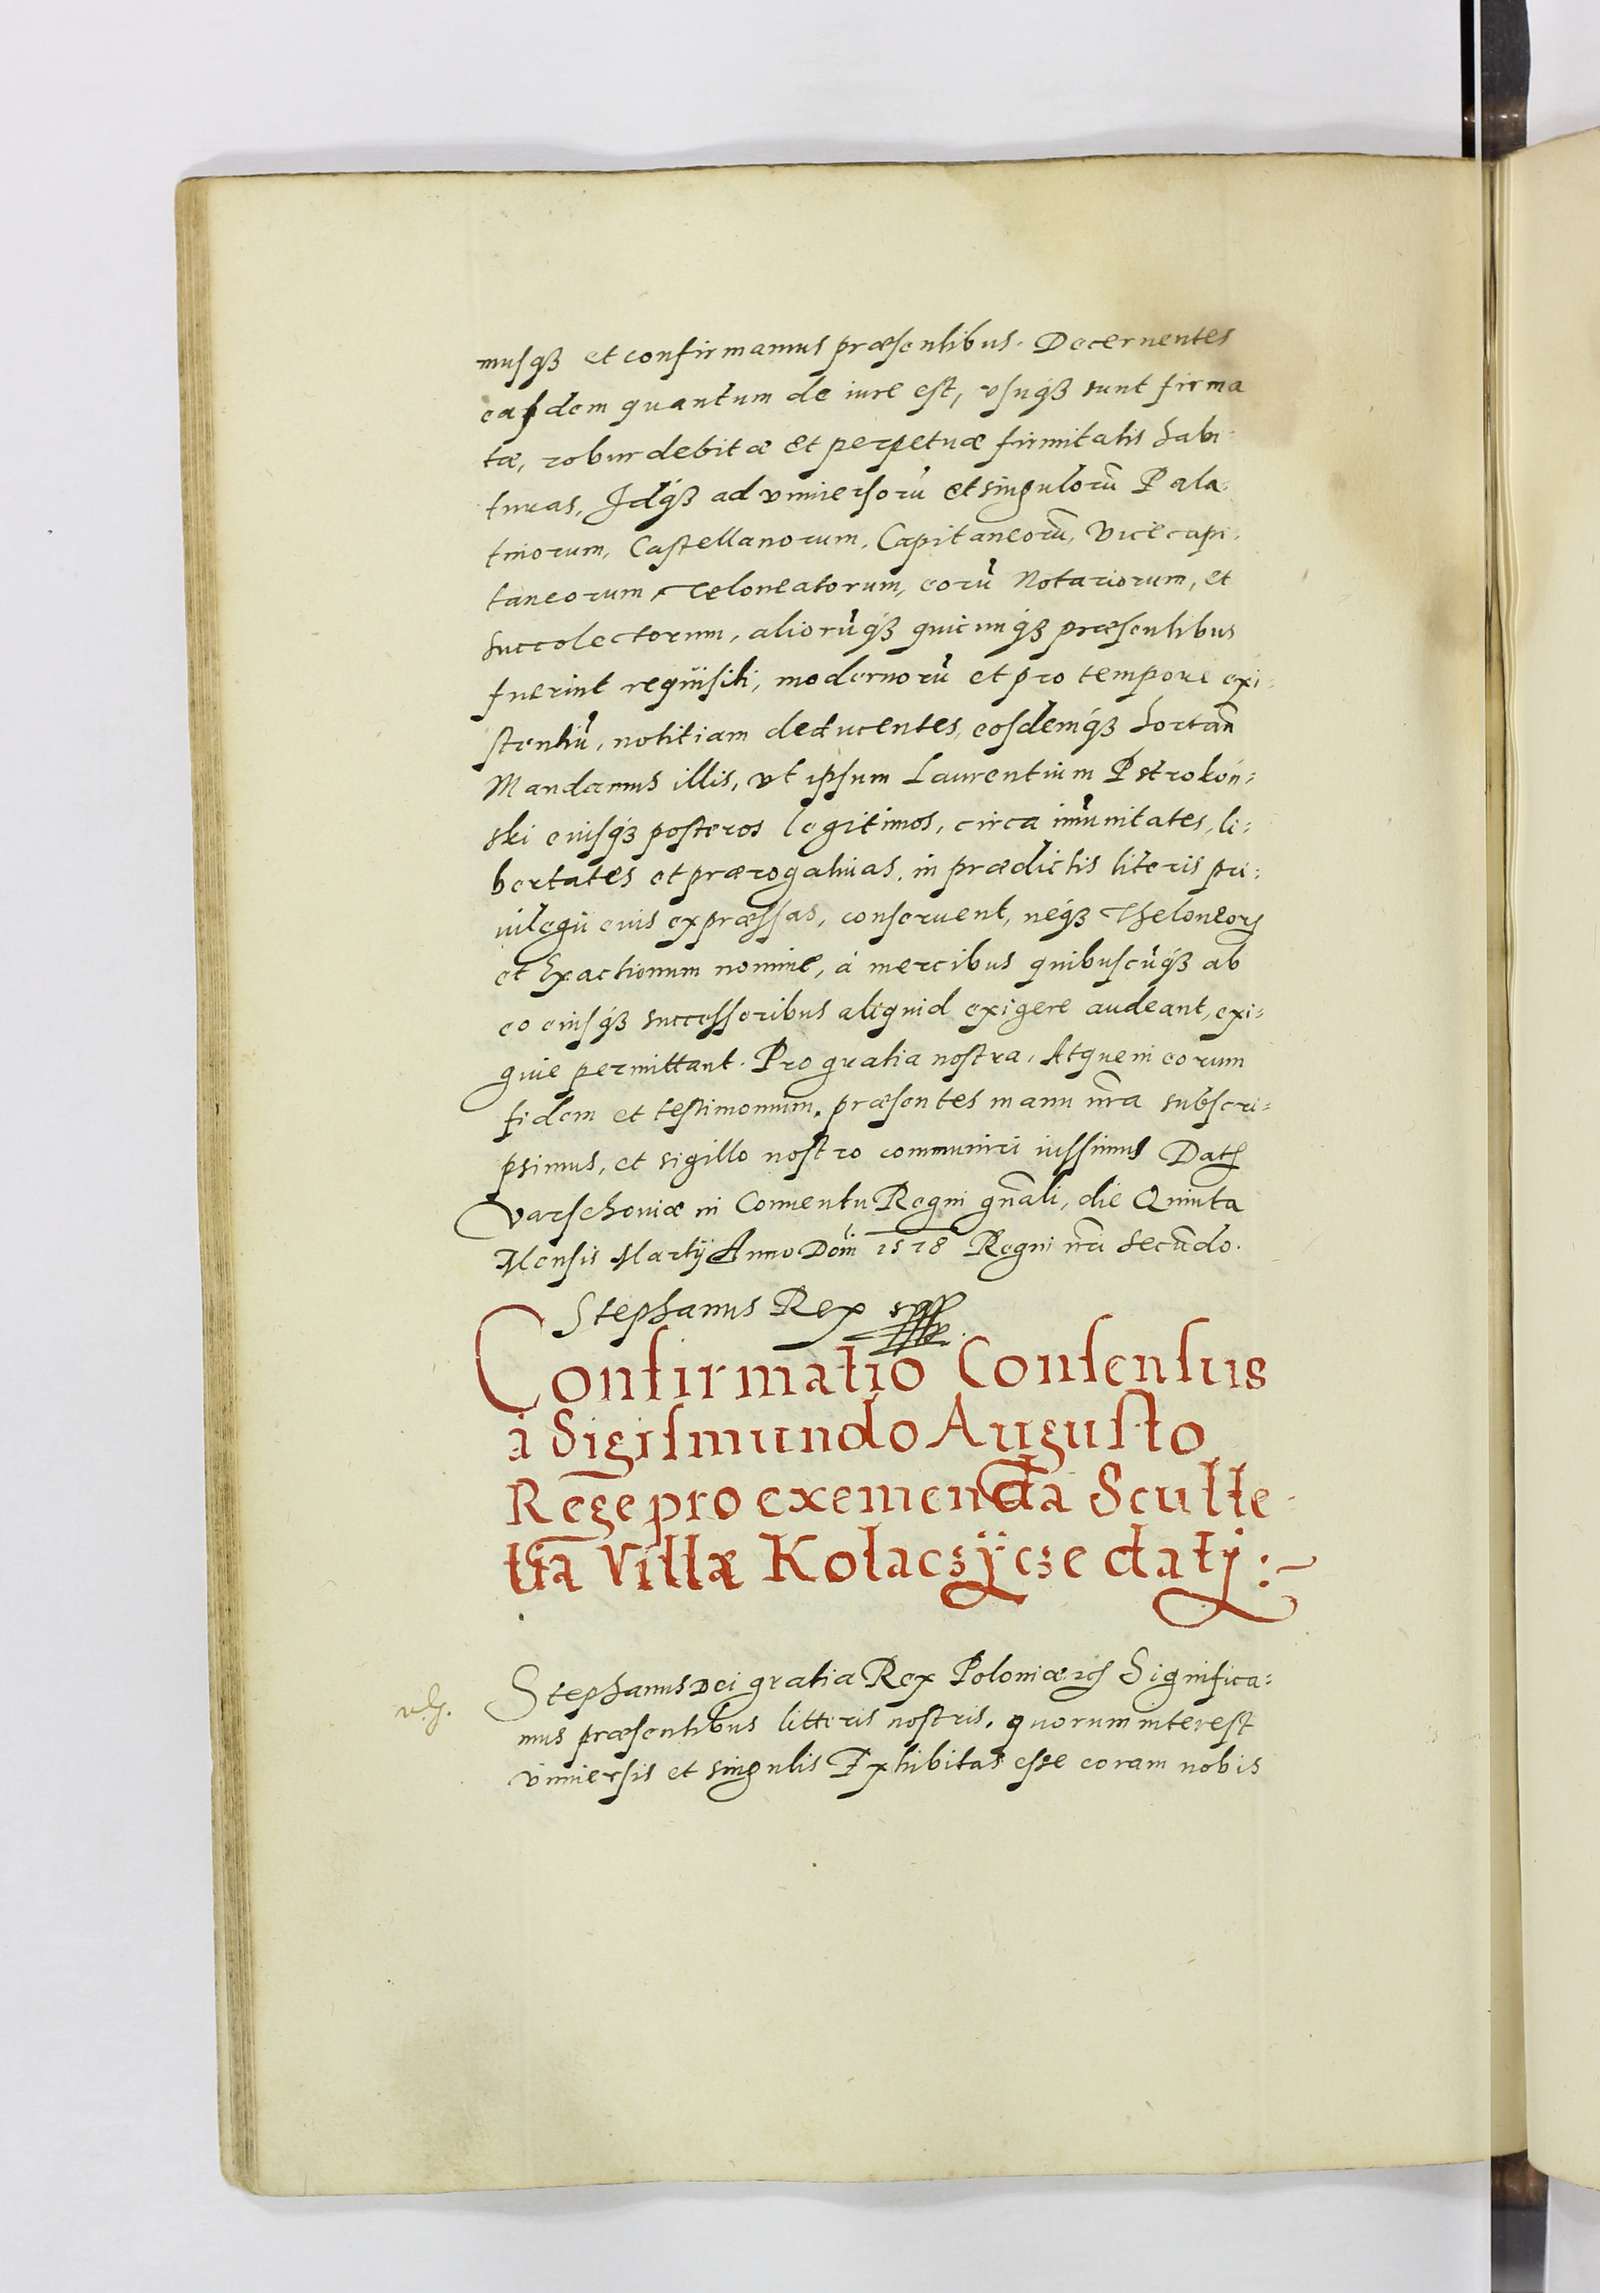 musq₃ et confirmamus præsentibus. Decernentes
easdem quantum de iure est, vsuq₃ sunt firma
tæ, robur debitæ et perpetuæ firmitatis habi:
turas, Idq₃ ad vniuersorũ et singulorũ Pala:
tinorum, Castellanorum, Capitaneorũ, Vicecapi:
taneorum, Teloneatorum, eorũ Notariorum, et
succolectorum, aliorũq₃ quicunq₃ præsentibus
fuerint requisiti, modernorũ et pro tempore exi:
stentiũ, notitiam deducentes, eosdemq₃ hortañ
Mandamus illis, vt ipsum Laurentium Pstrokón:
ski eiusq₃ posteros legitimos, circa imũnitates, li:
bertates et prærogatiuas, in prædictis literis pri:
uilegii eius expræssas, conseruent, neq₃ Theloneorꝝ
et Exactionum nomine, à mercibus quibuscũq₃ ab
eo eiusq₃ successoribus aliquid exigere audeant, exi:
giue permittant. Pro gratia nostra, Atque in eorum
fidem et testimonium, præsentes manu nr̃a subscri:
psimus, et sigillo nostro communiri iussimus Datꝭ
Varschouiæ in Conuentu Regni gñali, die Quinta
Mensis Martij Anno Dom̃ 1578 Regni nr̃i Secũdo.
Stephanus Rex
Confirmatio Consensus
à Sigismundo Augusto
Rege pro exemenda Sculte:
tia Villæ Kolaczÿcze datj :~
Stephanus Dei gratia Rex Poloniæ ꝛcꝭ Significa:
mus præsentibus litteris nostris, quorum interest
vniuersis et singulis Exhibitas esse coram nobis